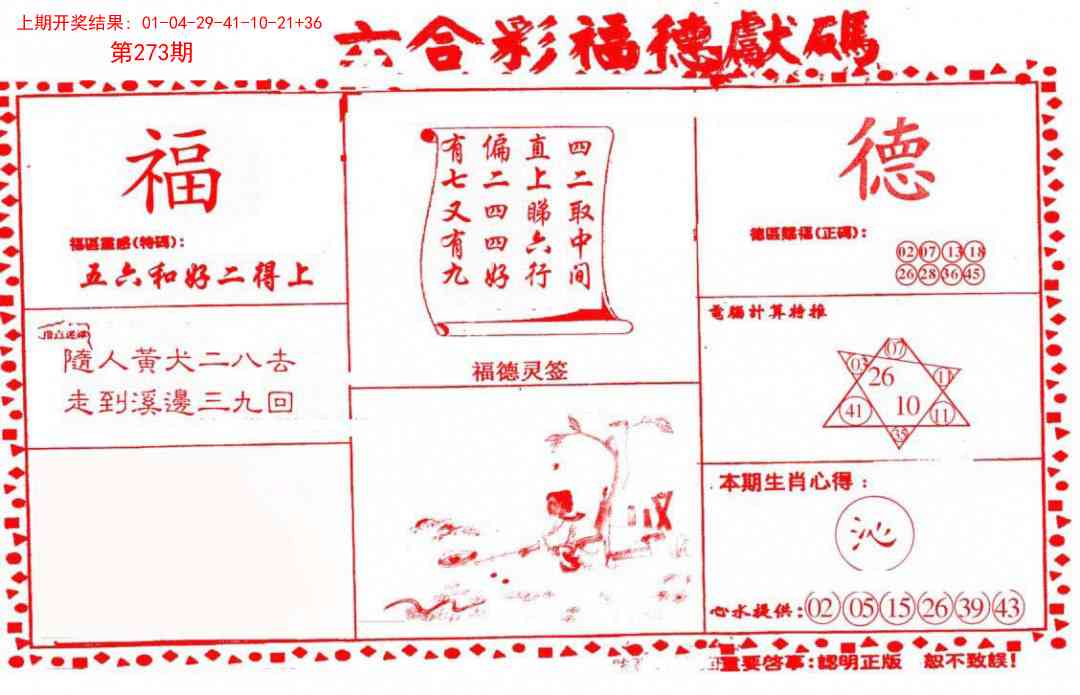 上期开奖结果：01-04-29-41-10-21+36
第273期
六合彩福德獻碼
福
福區靈感(特碼)：
五六和好二得上
隨人黃犬二八去
走到溪邊三九回
四二取中间
直上睇六行
偏二四四好
有七又有九
福德灵签
德
德區賜福(正碼)：
02 07 13 18
26 28 36 45
電腦計算特推
07
03
26
11
41
10
11
35
本期生肖心得：
沁
心水提供：02 05 15 26 39 43
重要啓事：認明正版 恕不致誤！